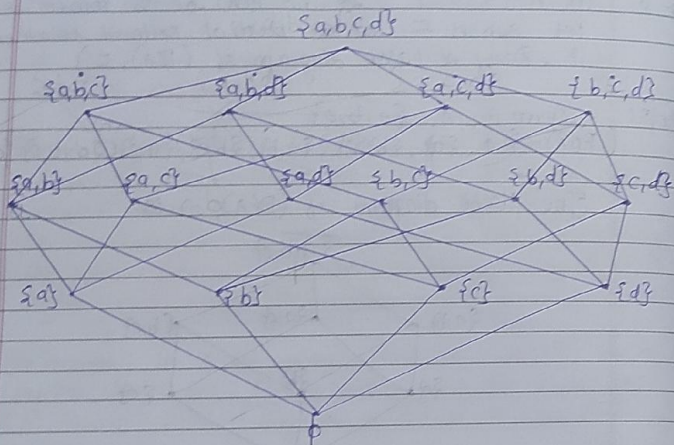 {a,b,c,d}
{a,b,c} {a,b,d} {a,c,d} {b,c,d}
{a,b} {a,c} {a,d} {b,c} {b,d} {c,d}
{a} {b} {c} {d}
ϕ